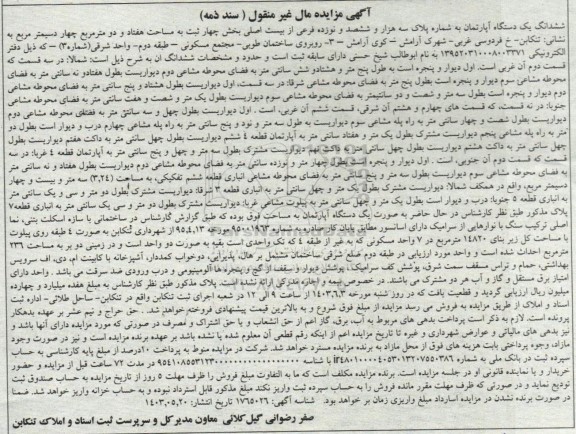 آگهی مزایده مال غیر منقول ( سند ذمه)
ششدانگ یک دستگاه آپارتمان به شماره پلاک سه هزار و ششصد و نوزده فرعی از بیست اصلی بخش چهار ثبت به مساحت هفتاد و دو مترمربع چهار دسیمتر مربع به
نشانی: تنکابن- خ فردوسی غربی- شهرک آرامش – کوی آرامش – ۳- روبروی ساختمان طوبی- مجتمع مسکونی – طبقه دوم- واحد شرقی(شماره۳) – که ذیل دفتر
الکترونیکی ۱۳۹۵۲۰۳۱۰۰۰۸۰۰۳۳۷۱ به نام ابوطالب شیخ حسنی دارای سابقه ثبت است و حدود و مشخصات ششدانگ آن به شرح ذیل است: شمالا: در سه قسمت که
قسمت دوم آن غربی است. اول دیوار و پنجره است به طول پنج متر و هشتاد و شش سانتی متر به فضای محوطه مشاعی دوم دیواریست بطول هفتاد و نه سانتی متر به فضای
محوطه مشاعی سوم دیوار و پنجره است بطول پنج متر به فضای محوطه مشاعی شرقا: در سه قسمت، اول دیواریست بطول هشتاد و پنج سانتی متر به فضای محوطه مشاعی
دوم دیوار و پنجره است بطول سه متر و شصت و دو سانتیمتر به فضای محوطه مشاعی سوم دیواریست بطول یک متر و شصت و هفت سانتی متر به فضای محوطه مشاعی
جنوبا: در نه قسمت، که قسمت های چهارم و هشتم آن شرقی، قسمت ششم آن غربی است. اول دیواریست بطول چهل و سه سانتی متر به فضای محوطه مشاعی دوم
دیواریست بطول شصت و چهار سانتی متر به راه پله مشاعی سوم دیواریست به طول سه متر و نود و پنج سانتی متر به راه پله مشاعی چهارم درب و دیوار است بطول دو
متر به راه پله مشاعی پنجم دیواریست مشترک بطول یک متر و هفتاد سانتی متر به آپارتمان قطعه ۴ ششم دیواریست بطول چهل سانتی متر به داکت هفتم دیواریست بطول
چهل سانتی متر به داکت هشتم دیواریست بطول چهل سانتی متر به داکت نهم دیواریست مشترک بطول سه متر و چهل و پنج سانتی متر به آپارتمان قطعه ۴ غربا: در سه
قسمت که قسمت دوم آن جنوبی است . اول دیوار و پنجره است بطول چهار متر و نوزده سانتی متر به فضای محوطه مشاعی دوم دیواریست بطول هفتاد و نه سانتی متر
به فضای محوطه مشاعی سوم دیواریست بطول سه متر و پنج سانتی متر به فضای محوطه مشاعی انباری قطعه ششم تفکیکی، به مساحت (۳,۲۴) سه متر و بیست و چهار
دسیمتر مربع، واقع در همکف شمالا: دیواریست مشترک بطول یک متر و چهل سانتی متر به انباری قطعه ۳ شرقا: دیواریست مشترک بطول دو متر و سی و یک سانتی متر
به انباری قطعه ۵ جنوبا: درب و دیوار است بطول یک متر و چهل سانتی متر به پیلوت مشاعی غربا: دیواریست مشترک بطول دو متر و سی یک سانتی متر به انباری قطعه۷
پلاک مذکور طبق نظر کارشناس در حال حاضر به صورت یک دستگاه آپارتمان به مساحت فوق بوده که طبق گزارش کارشناس در ساختمانی با سازه اسکلت بتنی، نما
اصلی ترکیب سنگ با نوارهایی از سرامیک دارای آسانسور مطابق پایان کار صادره به شماره ۹۵۰۱۰۹۶۳ مورخه ۹۵,۴,۱۳ از شهرداری تنکابن به صورت ۴ طبقه روی پیلوت
با مساحت کل زیر بنای ۱۴۸۲۰ مترمربع در ۷ واحد مسکونی که به غیر از طبقه ۴ که تک واحدی است بقیه به صورت دو واحد است و در زمینی دو بر به مساحت ۲۳۶
مترمربع احداث شده است و واحد مورد ارزیابی در طبقه دوم ضلع شرقی ساختمان مشتمل بر هال، پذیرایی، دوخواب کمددار، آشپزخانه با کابینت ام .دی. اف سرویس
بهداشتی، حمام و تراس مسقف سمت شرق، پوشش کف سرامیک، پوشش دیوار و سقف از گچ و پنجره ها آلومینیومی و درب ورودی ضد سرقت می باشد . واحد دارای
امتیاز برق مستقل و گاز و آب هر دو مشترک می باشند. در خصوص بیمه و اجاره مدرکی ارائه نشده است. پلاک مذکور طبق نظر کارشناس به مبلغ هفده میلیارد و چهارده
میلیون ریال ارزیابی گردید و قطعیت یافت که در روز شنبه مورخه ۱۴۰۳,۶,۳ از ساعت ۹ الی ۱۲ در شعبه اجرای ثبت تنکابن واقع در تنکابن- ساحل طلائی- اداره ثبت
اسناد و املاک از طریق مزایده به فروش می رسد مزایده از مبلغ فوق شروع و به بالاترین قیمت پیشنهادی فروخته خواهد شد. . حق حراج و نیم عشر بر عهده بدهکار
پرونده است. لازم به ذکر است پرداخت بدهی های مربوط به آب، برق، گاز اعم از حق انشعاب و یا حق اشتراک و مصرف در صورتی که مورد مزایده دارای آنها باشد و
نیز بدهی های مالیاتی و عوارض شهرداری و غیره تا تاریخ مزایده اعم از اینکه رقم قطعی آن معلوم شده یا نشده باشد بر عهده برنده مزایده است و نیز در صورت وجود
مازاد، وجوه پرداختی بابت هزینه های فوق از محل مازاد به برنده مزایده مسترد خواهد شد. شرکت در مزایده منوط به پرداخت ۱۰درصد از مبلغ پایه کارشناسی به حساب
سپرده ثبت در بانک ملی به شماره
خریدار و یا نماینده قانونی او در جلسه مزایده است. برنده مزایده مکلف است که ما به التفاوت مبلغ فروش را ظرف مهلت ۵ روز از تاریخ مزایده به حساب صندوق ثبت
تودیع نماید و در صورتی که ظرف مهلت مقرر مانده فروش را به حساب سپرده ثبت واریز نکند مبلغ مذکور قابل استرداد نبوده و به حساب خزانه واریز خواهد شد. ضمنا
در صورت برنده نشدن در مزایده استرداد مبلغ واریزی زمان بر خواهد بود. شناسه آگهی: ۱۷۶۵۰۲۶ تاریخ انتشار: ۱۴۰۳,۰۵,۲۰
صفر رضوانی گیل کلائی معاون مدیر کل و سرپرست ثبت اسناد و املاک تنکابن